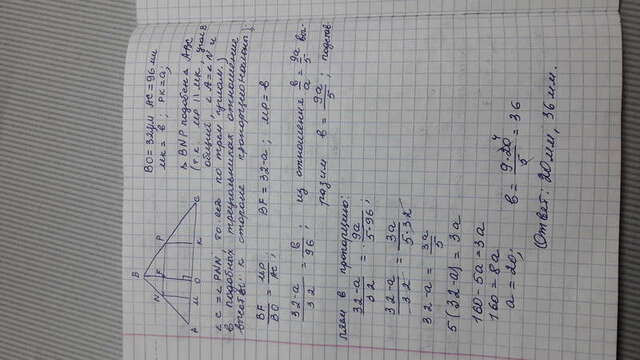 BO = 32мм AC = 96 мм
MK = в ; PK = a;
△ BNP подобен △ ABC
(т.к. MP || MK угол B
общий, ∠A = ∠N и
∠C = ∠PNN то есть по трем углам.)
В подобных треугольниках отношение
высоты к стороне пропорционально;
B
N
F
P
A
M
O
K
C
BF/BO = MP/AC; BF = 32-a; MP = в
32-a/32 = в/96; из отношения в/a = 9/5 вы-
разим в = 9a/5; подстав
ляем в пропорцию:
32-a/32 = 9a/5·96;
32-a/32 = 3a/5·32
32-a = 3a/5
5(32-a) = 3a
160-5a = 3a
160 = 8a
a = 20;
в = 9·20/5 = 36
4
(Ответ: 20мм, 36 мм.